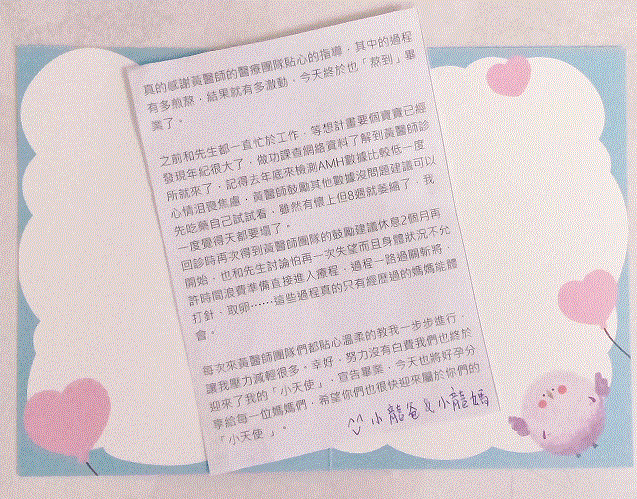 真的感謝黃醫師的醫療團隊貼心的指導，其中的過程
有多煎熬，結果就有多激動，今天終於也「熬到」畢
業了。
之前和先生都一直忙於工作，等想計畫要個寶寶已經
發現年紀很大了，做功課查網絡資料了解到黃醫師診
所就來了，記得去年底來檢測AMH數據比較低一度
心情沮喪焦慮，黃醫師鼓勵其他數據沒問題建議可以
先吃藥自己試試看，雖然有懷上但8週就萎縮了，我
一度覺得天都要塌了。
回診時再次得到黃醫師團隊的鼓勵建議休息2個月再
開始，也和先生討論怕再一次失望而且身體狀況不允
許時間浪費準備直接進入療程，過程一路過關斬將，
打針、取卵……這些過程真的只有經歷過的媽媽能體
會。
每次來黃醫師團隊們都貼心溫柔的教我一步步進行，
讓我壓力減輕很多。幸好，努力沒有白費我們也終於
迎來了我的「小天使」，宣告畢業，今天也將好孕分
享給每一位媽媽們，希望你們也很快迎來屬於你們的
「小天使」。
小龍爸&小龍媽